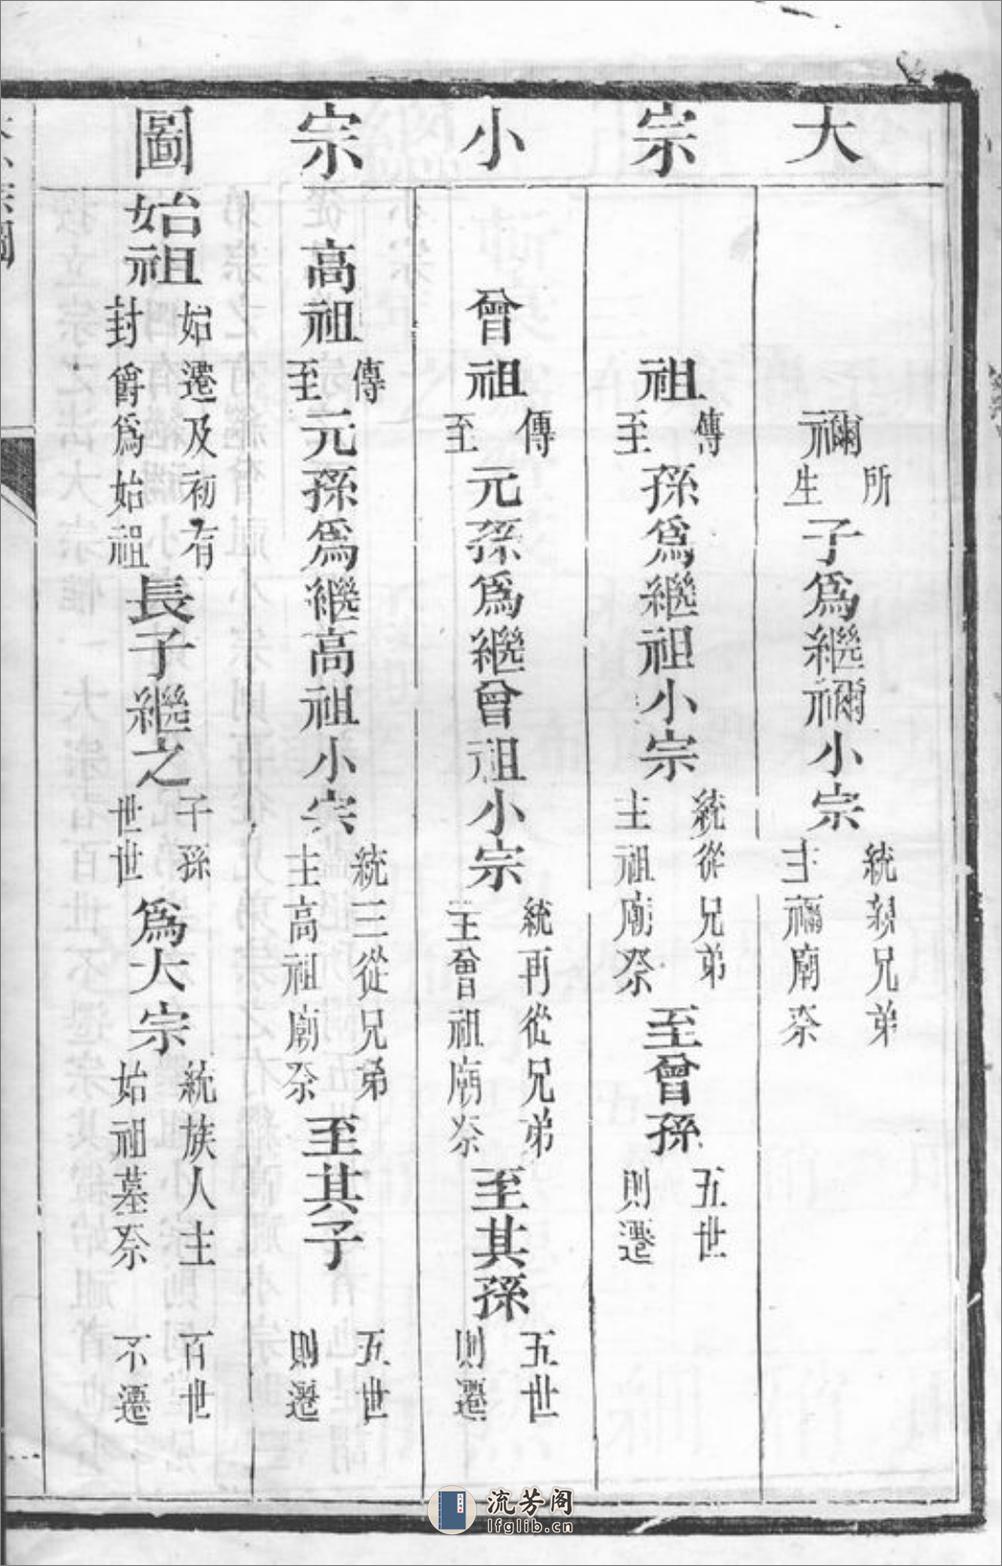 大宗小宗圖
禰所生子爲繼禰小宗統親兄弟主禰廟祭
祖傳至孫爲繼祖小宗統從兄弟主祖廟祭至曾孫五世則遷
曾祖傳至元孫爲繼曾祖小宗統再從兄弟主曾祖廟祭至其孫五世則遷
高祖傳至元孫爲繼高祖小宗統三從兄弟主高祖廟祭至其子五世則遷
始祖始遷及初有封爵爲始祖長子繼之子孫世世爲大宗統族人主始祖墓祭百世不遷
流芳阁
lfglib.cn